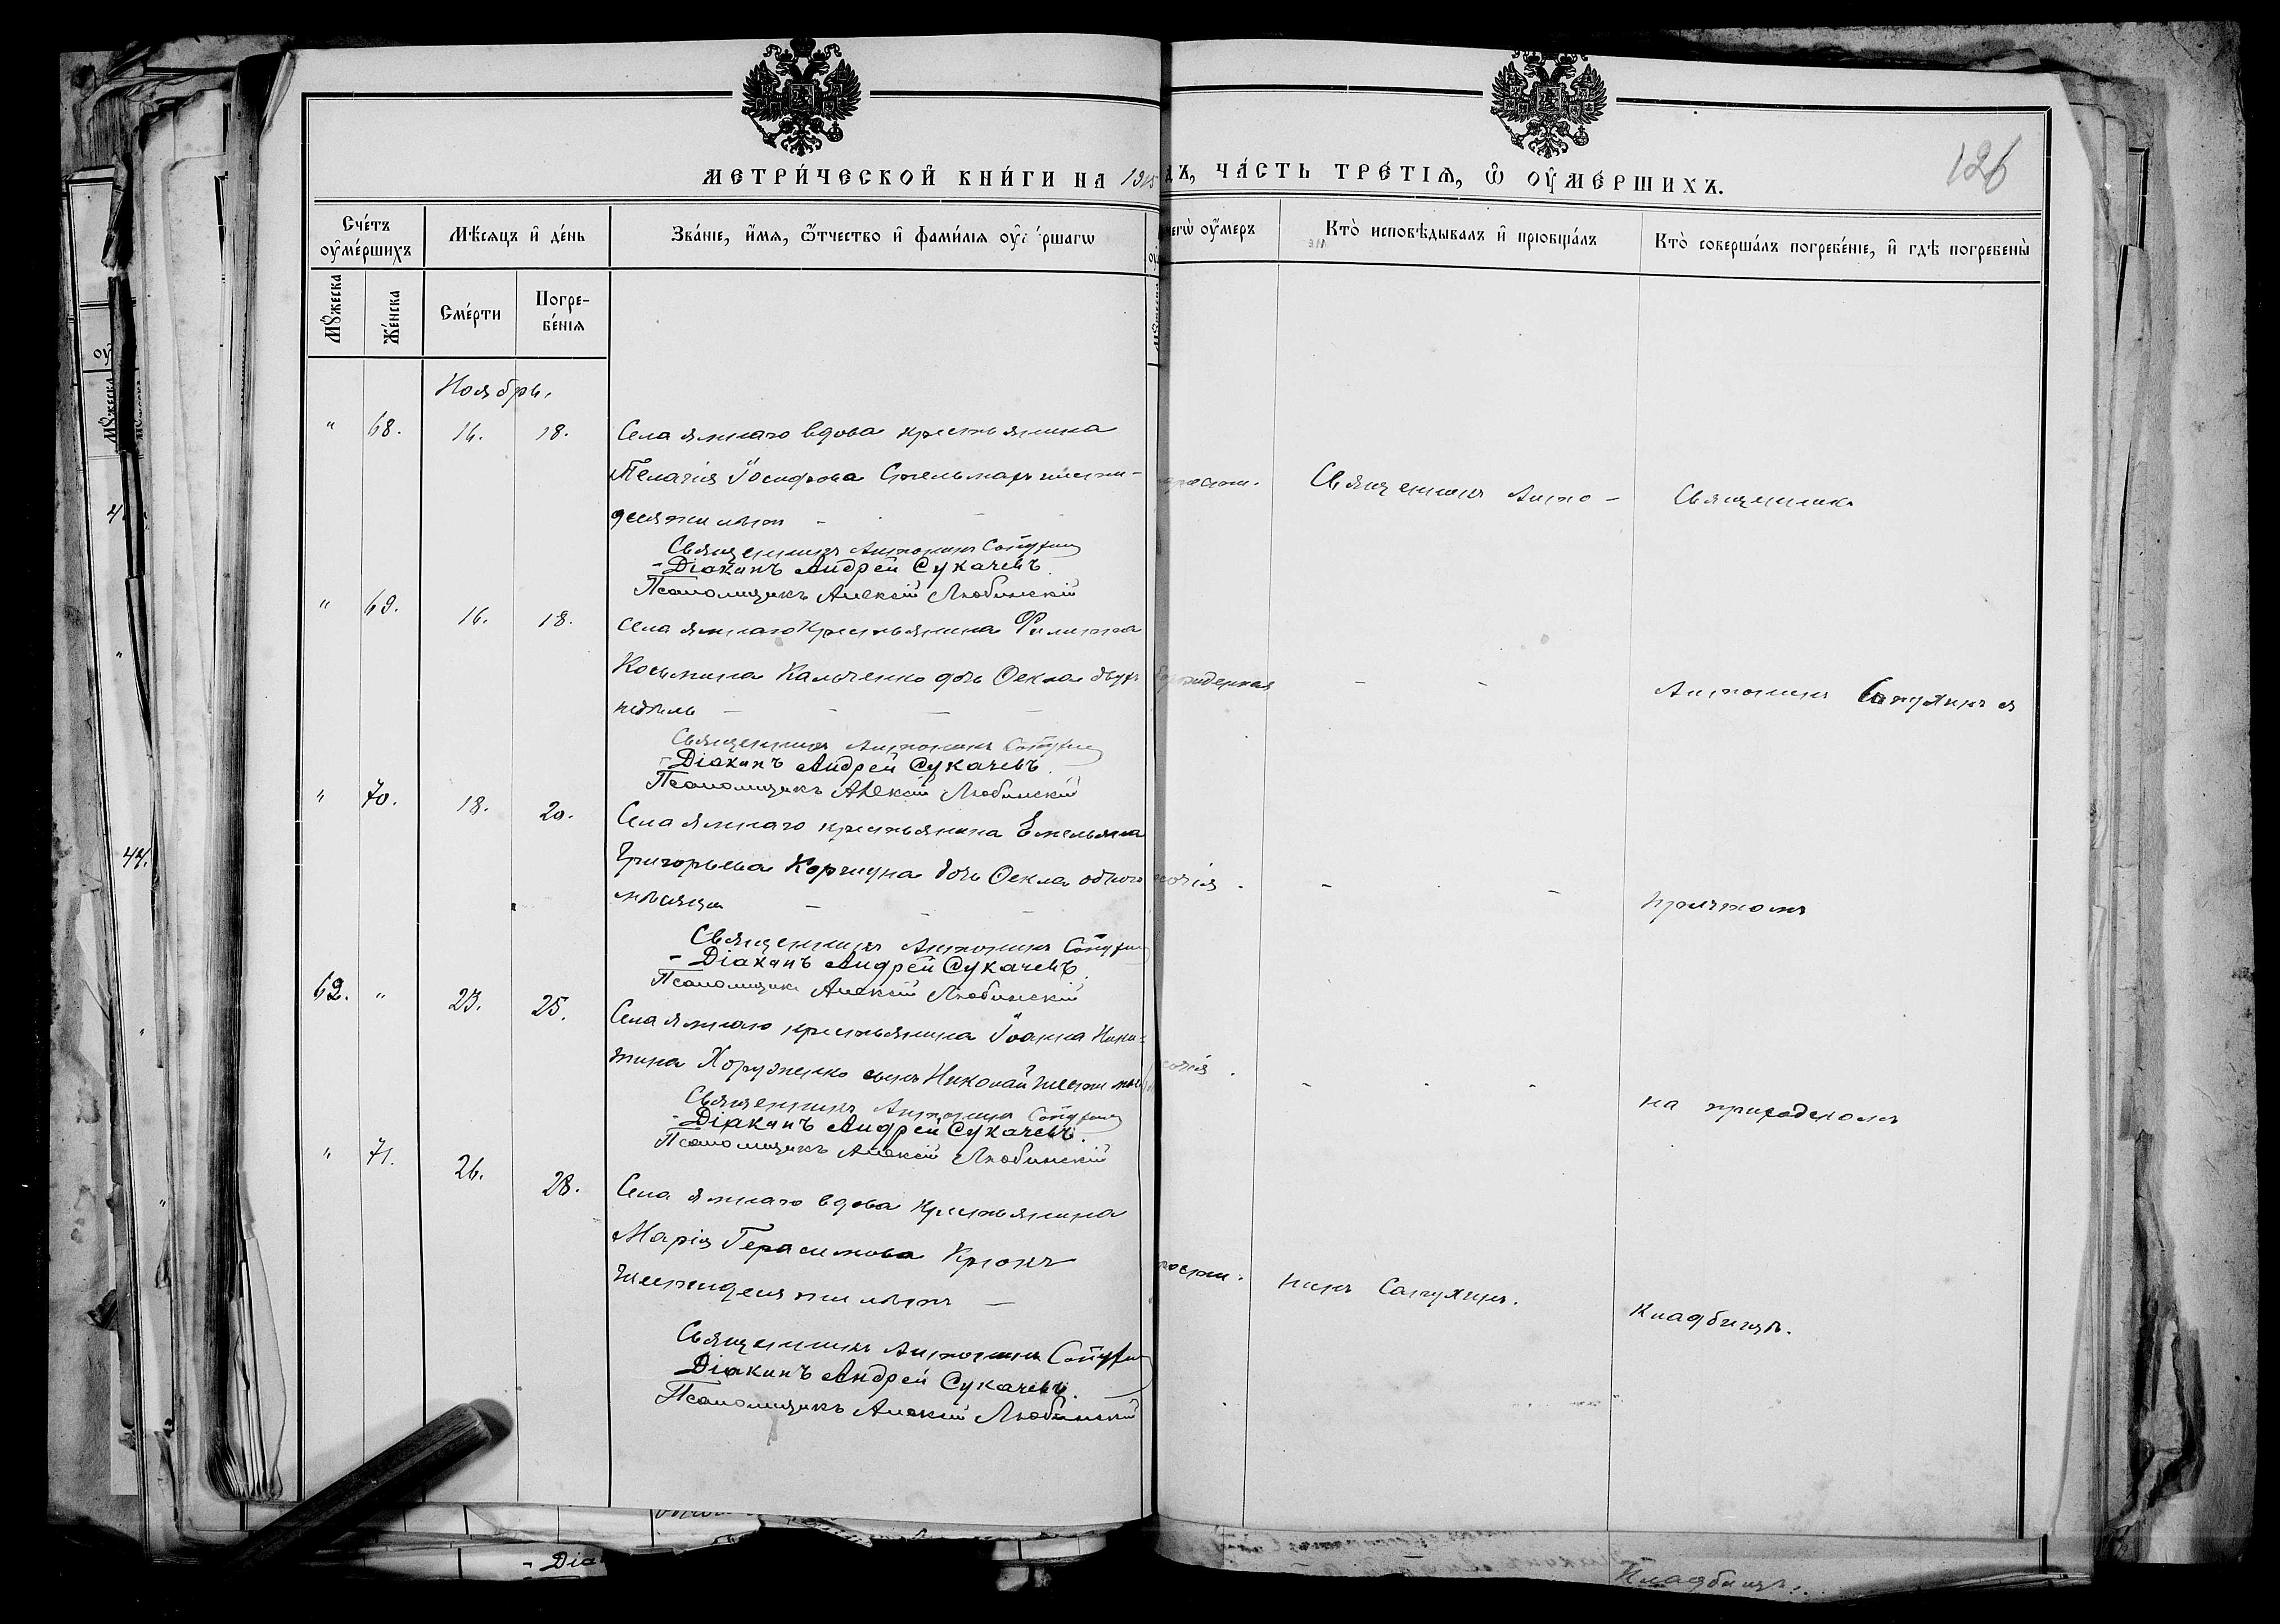 МЕТРИ́ЧЕСКОЙ КНИ́ГИ НА 1915
ДЪ, ЧА́СТЬ ТРЕ́ТІѦ, Ѡ ОУ҆МЕ́РШИХЪ.
126
Сче́тъ оу҆ме́ршихъ
Мѣ́сяцъ и҆ де́нь
Зва́ніе, и҆́мѧ, ѻ҆́тчество и҆ фами́лїѧ
егѡ оу҆́меръ
Кто̀ исповѣ́дывалъ и҆ прїобща́лъ
Кто̀ соверша́лъ погребе́нїе, и҆ гдѣ̀ погребены̀
Мꙋ́жеска
Же́нска
Сме́рти
Погре-
бе́нїѧ
Ноябрь.
" 68. 16. 18. Села Ямнаго вдова крестьянина
Пелагія Іосифова Стельмахъ шести-
десяти лѣтъ -
Священникъ Антонинъ
Діаконъ Андрей Сукачевъ.
Псаломщикъ Алексій Любинскій
Священникъ Анто-
Священникъ
" 69. 16. 18. Села Ямнаго Крестьянина Филиппа
Косьмина Кальченко дочь Ѳекла двухъ
недѣль - - - -
Священникъ Антонинъ
Діаконъ Андрей Сукачевъ.
Псаломщикъ Алексій Любинскій
- -
Антонинъ Сапухинъ я
" 70. 18. 20. Села Ямнаго крестьянина Емельяна
Григорьева Коршуна дочь Ѳекла одного
мѣсяца - - -
Священникъ Антонинъ
Діаконъ Андрей Сукачевъ.
Псаломщикъ Алексій Любинскій
- - -
причтомъ
62. " 23. 25. Села Ямнаго крестьянина Іоанна Ники-
тина Хоруженко сынъ Николай шести
Священникъ Антонинъ
Діаконъ Андрей Сукачевъ.
Псаломщикъ Алексій Любинскій
- - -
на приходскомъ
" 71. 26. 28. Села Ямнаго вдова Крестьянина
Марія Герасимова Крюкъ
шестидесяти лѣтъ -
Священникъ Антонинъ
Діаконъ Андрей Сукачевъ.
Псаломщикъ Алексій Любинскій
нинъ Сапухинъ.
Кладбищѣ.
44.
Кладбищѣ.